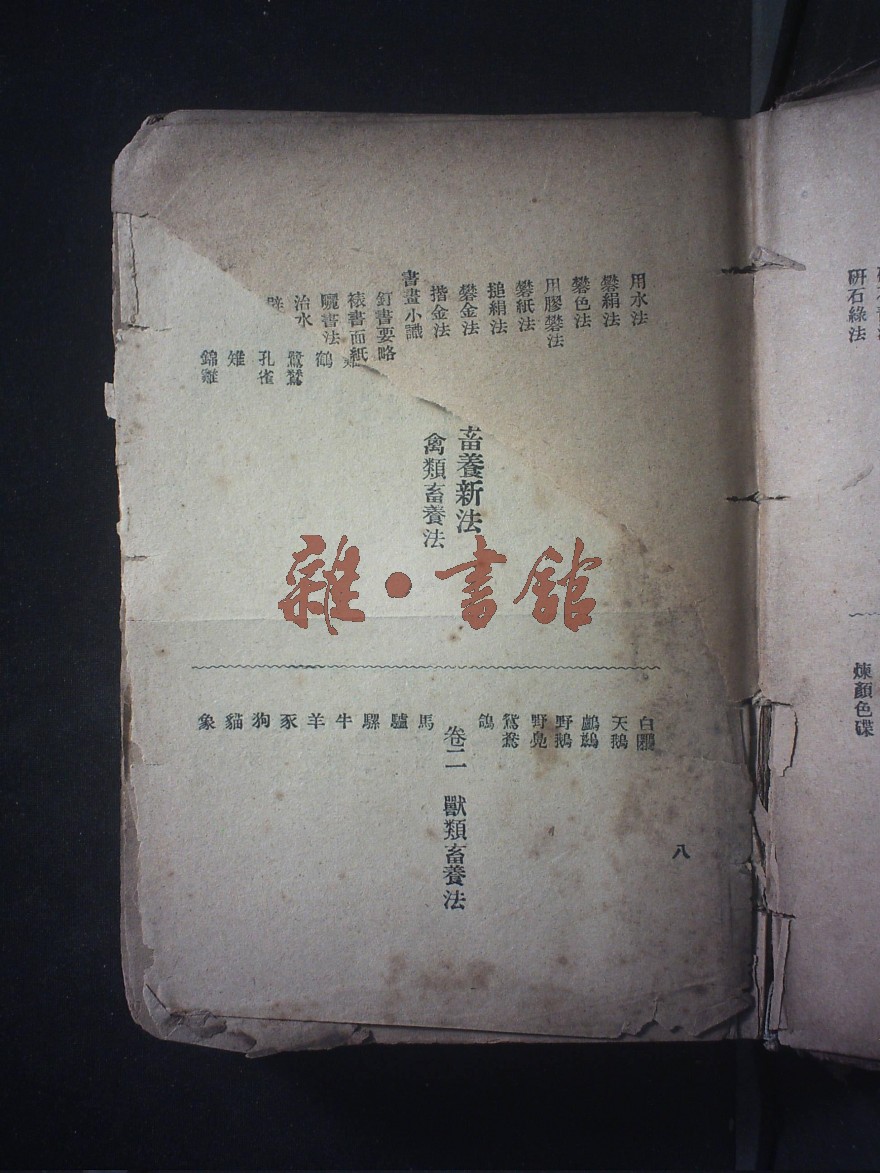 研石綠法
煉顏色碟
用水法
礬絹法
礬色法
用膠礬法
礬紙法
搥絹法
礬金法
揩金法
書畫小識
釘書要略
裱書面紙
曬書法
治水
畜養新法
禽類畜養法
鶴
鷺鷥
孔雀
雉
錦雞
白鷳
天鵝
鸕鶿
野鵝
野鳧
鴛鴦
鴿
卷二 獸類畜養法
馬
驢
騾
牛
羊
豕
狗
貓
象
八
雜·書館